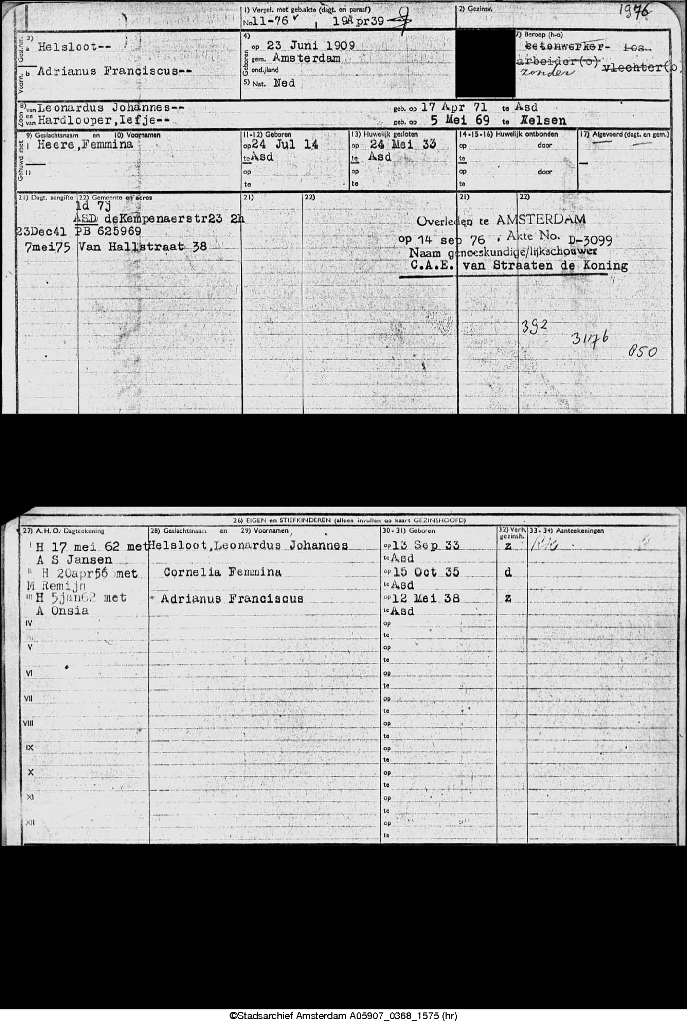 1) Vergel. met gebakte (dagt. en paraaf)
2) Gezinst.
1976
No 11-76 19Apr39
3)
a Helsloot--
b Adrianus Franciscus--
4)
op 23 Juni 1909
gem. Amsterdam
5) Nat. Ned
7) Beroep (h-o)
betonwerker- los
arbeider(o)
zonder vlechter(o
8) van Leonardus Johannes-- geb. op 17 Apr 71 te Asd
en van Hardlooper, Iefje-- geb. op 5 Mei 69 te Velsen
9) Geslachtsnaam en 10) Voornamen
11-12) Geboren
13) Huwelijk gesloten
14-15-16) Huwelijk ontbonden
17) Afgevoerd (dagt. en gem.)
Gehuwd met
I Heere, Femmina op 24 Jul 14 op 24 Mei 33 op door
te Asd te Asd te
II op op op door
te te te
21) Dagt. aangifte 22) Gemeente en adres 21) 22) 21) 22)
1d 7j
ASD deKempenaerstr23 2h
23Dec41 PB 625969
7mei75 Van Hallstraat 38
Overleden te AMSTERDAM
op 14 sep 76 , Akte No. D-3099
Naam geneeskundige/lijkschouwer
C.A.E. van Straaten de Koning
392
3176
050
26) EIGEN en STIEFKINDEREN (alleen invullen op kaart GEZINSHOOFD)
27) A.H.O.: Dagteekening 28) Geslachtsnaam en 29) Voornamen 30-31) Geboren 32) Verh. gezinsh. 33-34) Aanteekeningen
I H 17 mei 62 met Helsloot, Leonardus Johannes op 13 Sep 33 z RK
A S Jansen te Asd
II H 20apr56 met Cornelia Femmina op 15 Oct 35 d
M Remijn te Asd
III H 5jan62 met Adrianus Franciscus op 12 Mei 38 z
A Onsia te Asd
IV op
te
V op
te
VI op
te
VII op
te
VIII op
te
IX op
te
X op
te
XI op
te
XII op
te
©Stadsarchief Amsterdam A05907_0368_1575 (hr)